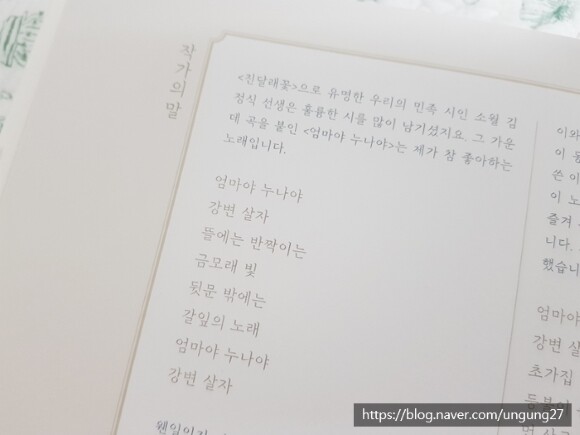 작가의 말
<진달래꽃>으로 유명한 우리의 민족 시인 소월 김
정식 선생은 훌륭한 시를 많이 남기셨지요. 그 가운
데 곡을 붙인 <엄마야 누나야>는 제가 참 좋아하는
노래입니다.
엄마야 누나야
강변 살자
뜰에는 반짝이는
금모래 빛
뒷문 밖에는
갈잎의 노래
엄마야 누나야
강변 살자
이와
이 동
쓴 이
이 노
즐겨
니다.
했습니
엄마야
강변 살
초가집
https://blog.naver.com/ungung27